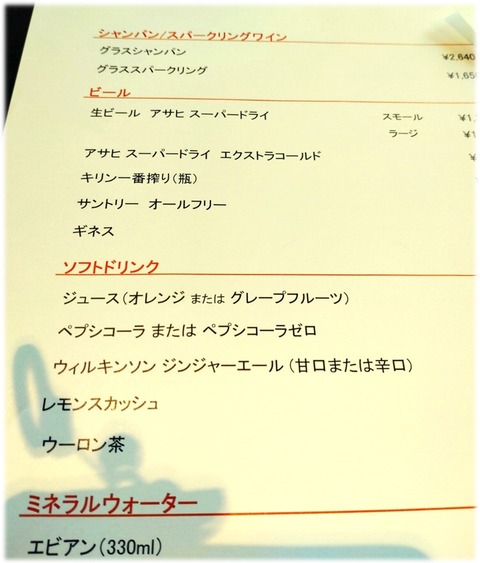 シャンパン/スパークリングワイン
グラスシャンパン ¥2,640
グラススパークリング ¥1,65
ビール
生ビール アサヒ スーパードライ スモール ¥1,
ラージ ¥1
アサヒ スーパードライ エクストラコールド ¥
キリン一番搾り(瓶)
サントリー オールフリー
ギネス
ソフトドリンク
ジュース(オレンジ または グレープフルーツ)
ペプシコーラ または ペプシコーラゼロ
ウィルキンソン ジンジャーエール (甘口または辛口)
レモンスカッシュ
ウーロン茶
ミネラルウォーター
エビアン(330ml)